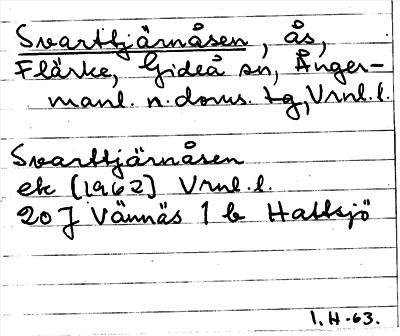 Svarttjärnåsen, ås,
Flärke, Gideå sn, Ånger-
manl. n. doms. tg, Vrnl. l.
Svarttjärnåsen
ek [1962] Vrnl. l.
20 J Vännäs 1 b Hattsjö
I. H-63.